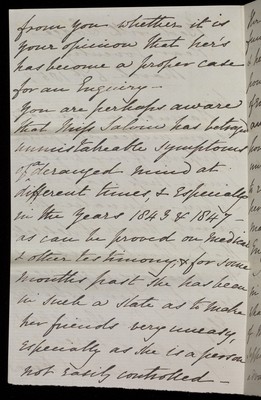 from you whether it is
your opinion that her's
has become a proper case
for an Enquiry —
You are perhaps aware
that Miss Salvin has betray'd
unmistakeable symptoms
of a deranged mind at
different times, & Especially
in the Years 1843 & 1847 —
as can be proved on medical
& other testimony, & for some
months past she has been
in such a state as to make
her friends very uneasy,
Especially as she is a person
not Easily controlled —